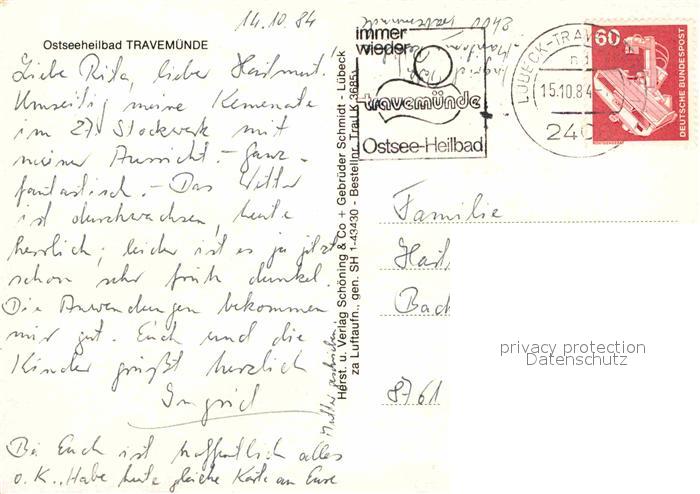 14.10.84
Ostseeheilbad TRAVEMÜNDE
Liebe Rita, lieber Hartmut!
Umseitig meine Kemenate
im 27. Stockwerk mit
meiner Aussicht. - Ganz
fantastisch. - Das Wetter
ist durchwachsen, heute
herrlich; leider ist es ja jetzt
schon sehr früh dunkel.
Die Anwendungen bekommen
mir gut. Euch und die
Kinder grüßt herzlich
Ingrid
Bei Euch ist hoffentlich alles
o.K., Habe heute gleiche Karte an Eure
Mutter geschrieben.
Herst. u. Verlag Schöning & Co + Gebrüder Schmidt - Lübeck
za Luftaufn., gen. SH 1-43430 - Bestellnr. Tra LK 3685
Ingrid
2400 Travemünde
immer
wieder
travemünde
Ostsee-Heilbad
LÜBECK-TRAV
15.10.84
240
60
DEUTSCHE BUNDESPOST
Familie
Hart
Bad
8761
privacy protection
Datenschutz